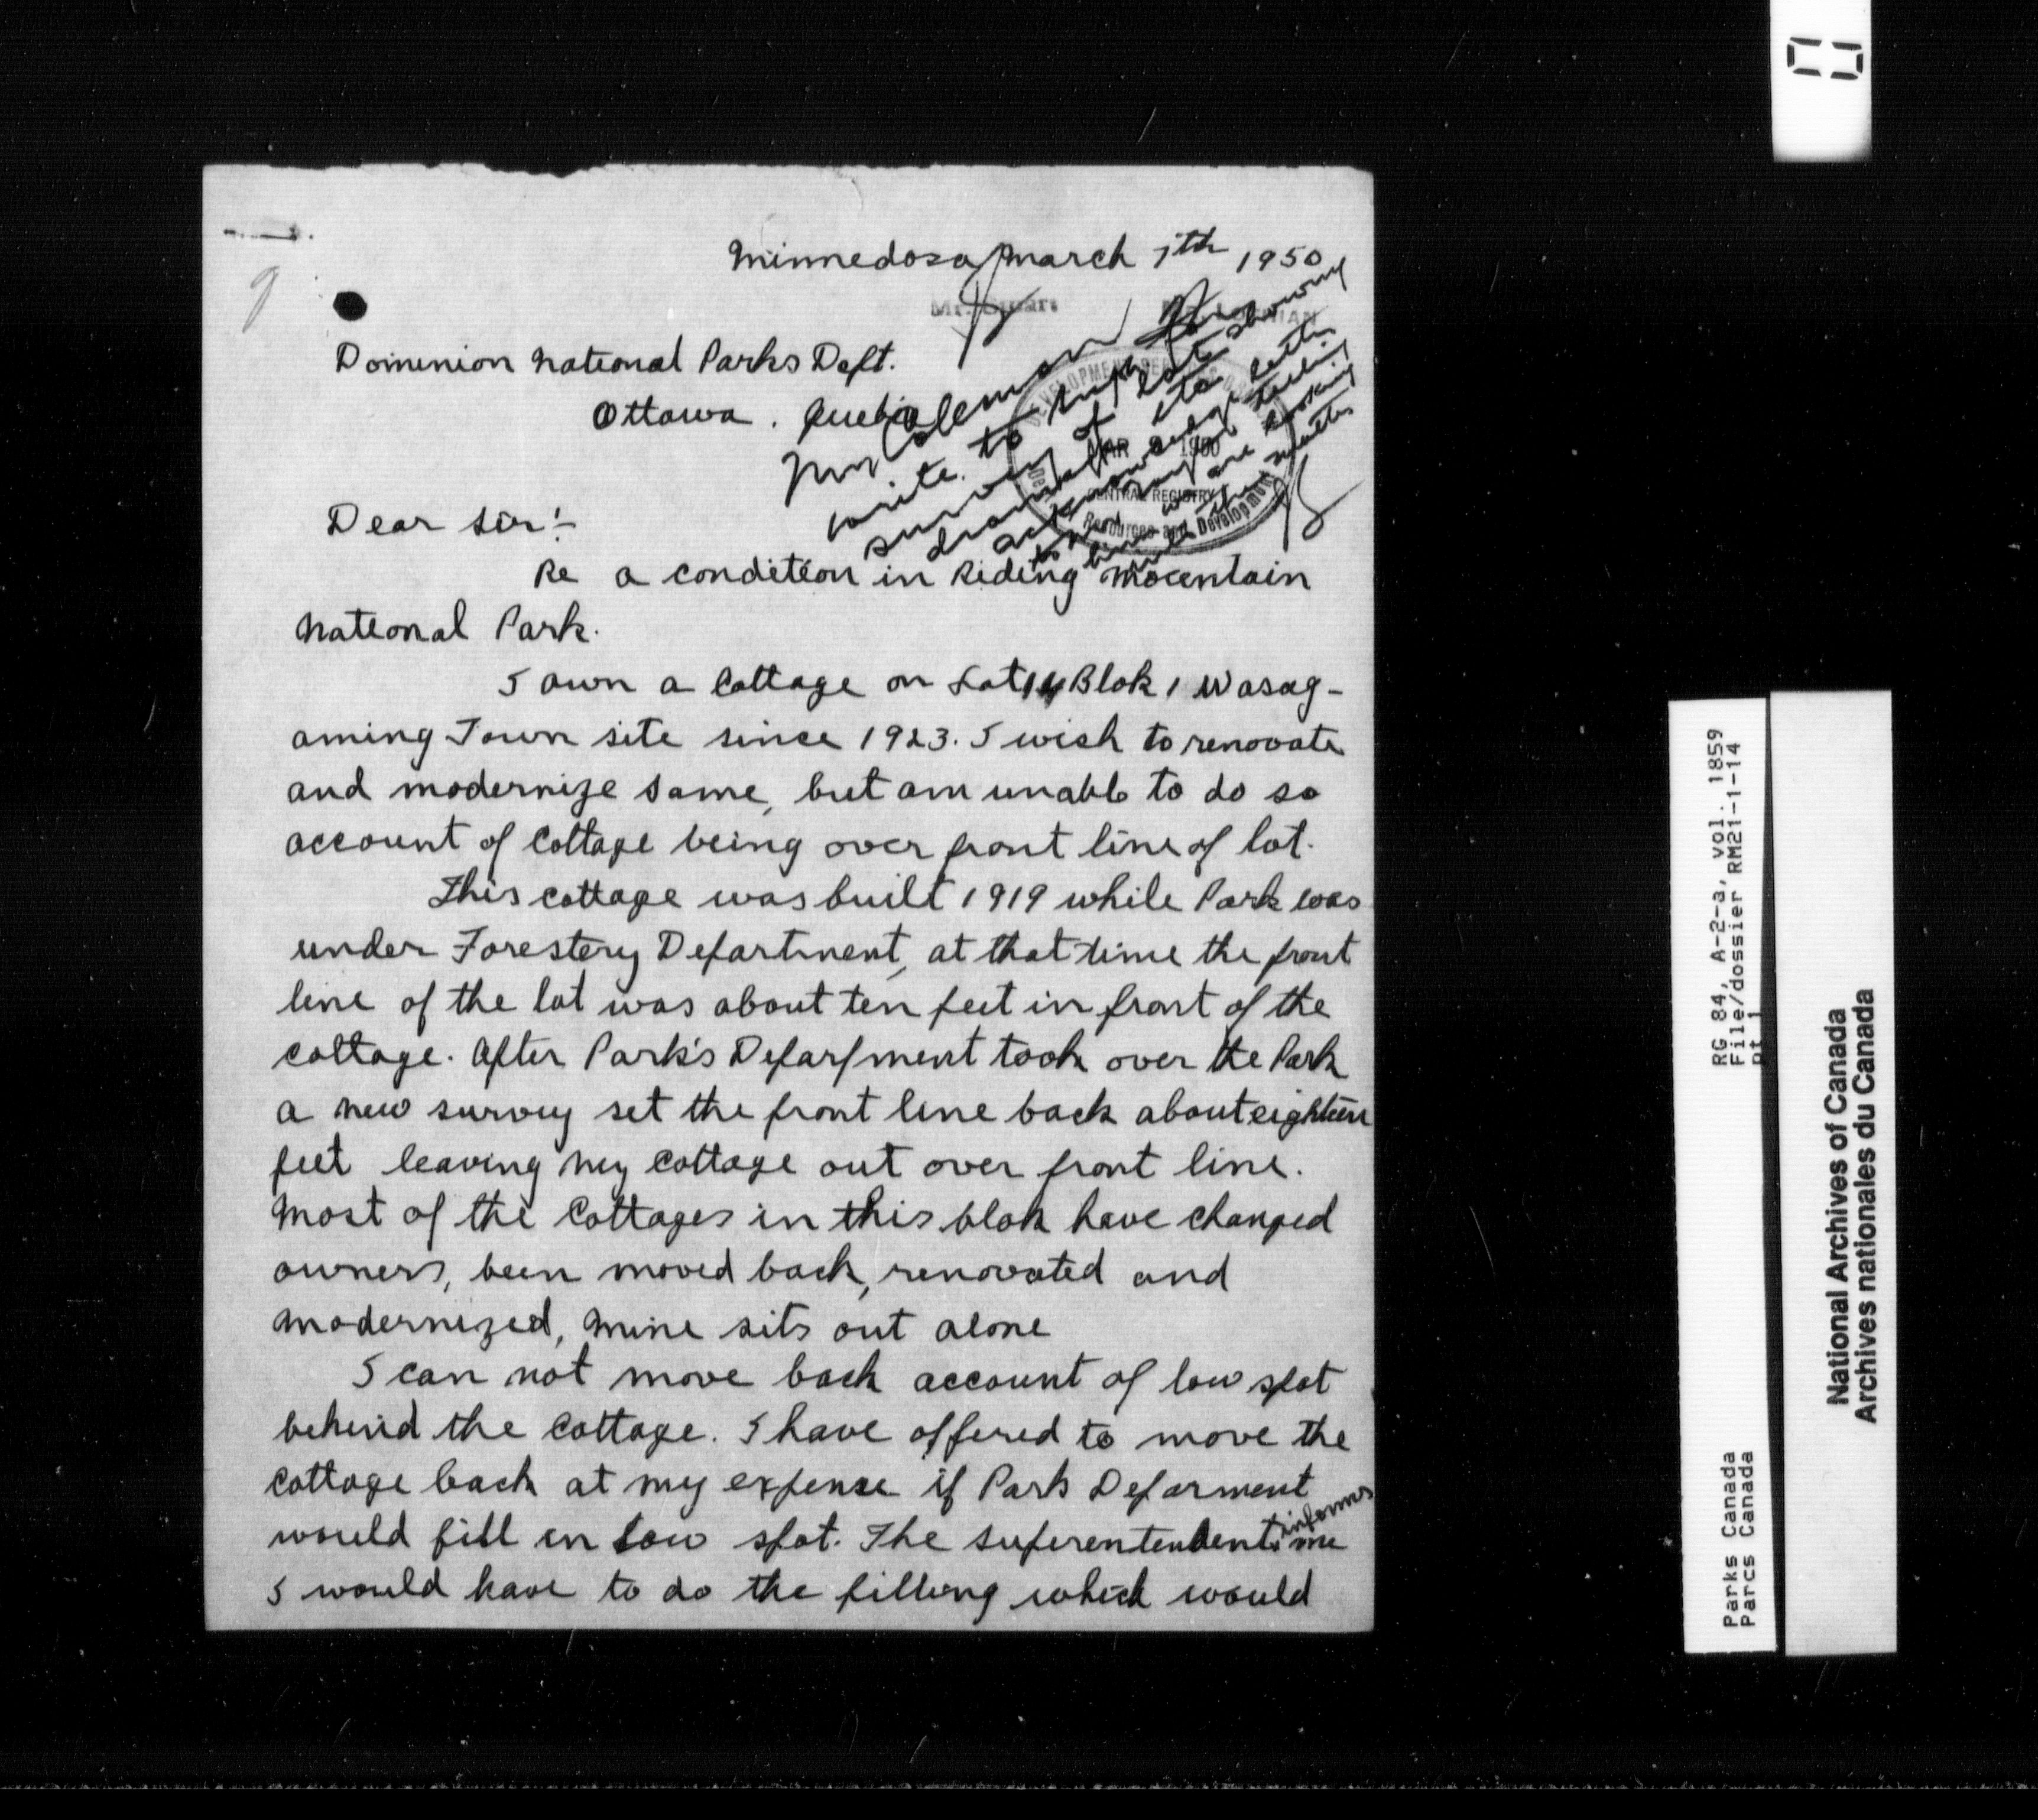 Minnedosa March 7th 1950
Dominion National Parks Dept.
Ottawa. Quebec
Mr Coleman
write to Supt for
survey of lot showing
drainage etc
acknowledge letter
we are looking
into the matter
DEVELOPMENT SER
MAR 1950
CENTRAL REGISTRY
Resources and Development
Dear Sir:-
Re a condition in Riding Mountain
National Park.
I own a Cottage on Lot 14 Blok 1 Wasag-
aming Town site since 1923. I wish to renovate
and modernize same, but am unable to do so
account of Cottage being over front line of lot.
This cottage was built 1919 while Park was
under Forestery Department, at that time the front
line of the lot was about ten feet in front of the
cottage. After Park's Deparpment took over the Park
a new survey set the front line back about eighteen
feet leaving my cottage out over front line.
Most of the Cottages in this blok have changed
owners, been moved back, renovated and
modernized, mine sits out alone
I can not move back account of low spot
behind the cottage. I have offered to move the
cottage back at my expense if Park Deparment
would fill in low spot. The superentendent informs me
I would have to do the filling which would
RG 84, A-2-a, vol. 1859
File/dossier RM21-1-14
pt 1
Parks Canada
Parcs Canada
National Archives of Canada
Archives nationales du Canada